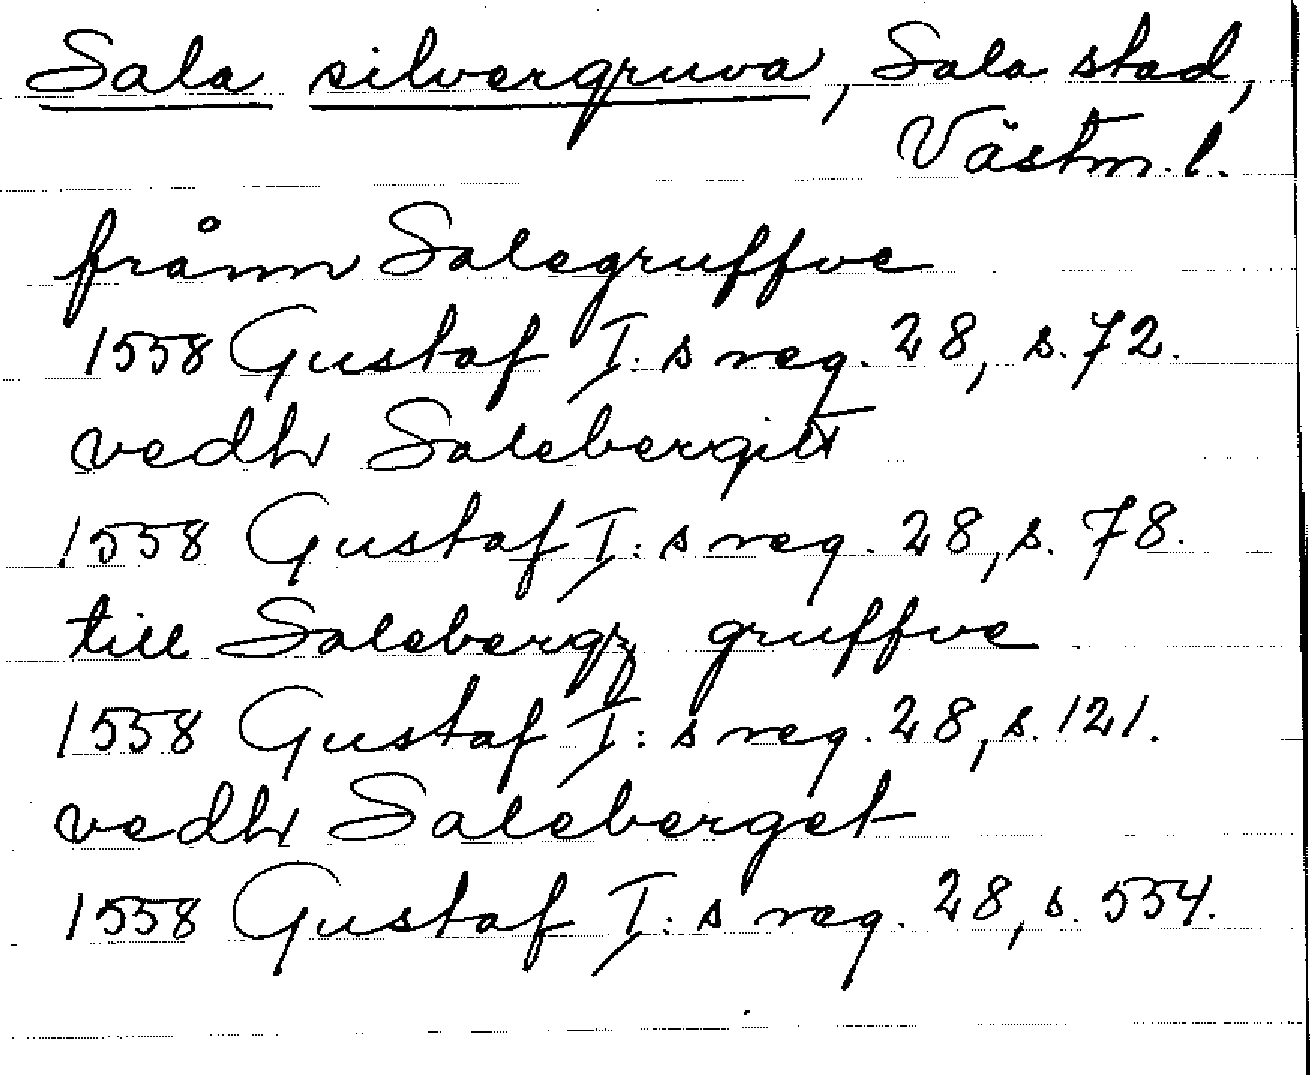 Sala silvergruva, Sala stad,
Västm. l.
frånn Salegruffve
1558 Gustaf I:s reg. 28, s. 72.
vedh Salebergitt
1558 Gustaf I:s reg. 28, s. 78.
till Salebergz gruffve
1558 Gustaf I:s reg. 28, s. 121.
vedh Saleberget
1558 Gustaf I:s reg. 28, s. 554.